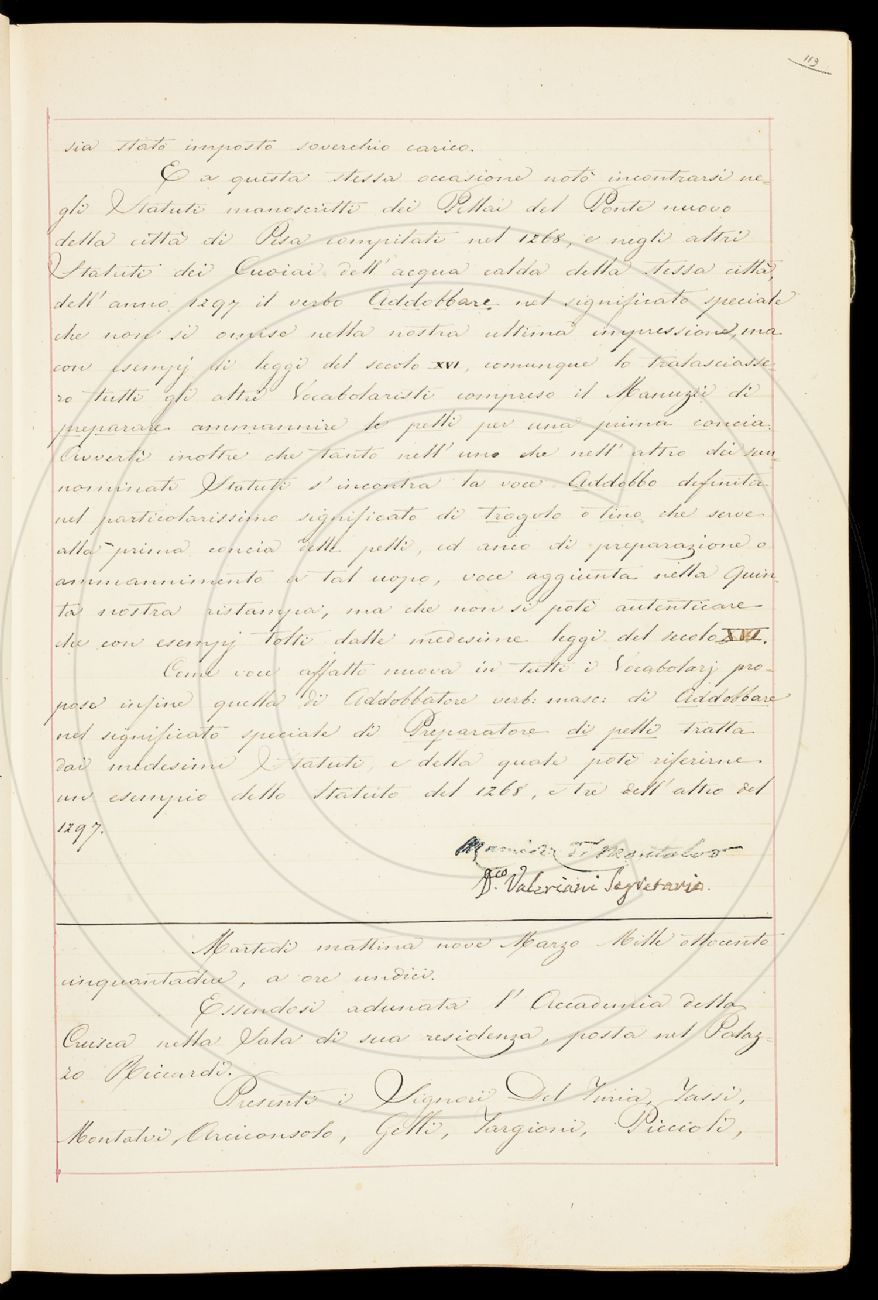 119
sia stato imposto soverchio carico.
E a questa stessa occasione notò incontrarsi ne-
gli Statuti manoscritti dei Pellai del Ponte nuovo
della città di Pisa compilati nel 1268, e negli altri
Statuti dei Cuoiai dell'acqua calda della stessa città,
dell'anno 1297 il verbo Addobbare nel significato speciale
che non si omise nella nostra ultima impressione, ma
con esempj di leggi del secolo XVI, comunque lo tralasciasse-
ro tutti gli altri Vocabolaristi compreso il Manuzzi di
preparare ammannire le pelli per una prima concia.
Avvertì inoltre che tanto nell'uno che nell'altro dei sun-
nominati Statuti s'incontra la voce Addobbo definita
nel particolarissimo significato di che serve
alla prima concia delle pelli, ed anco di preparazione o
ammannimento a tal uopo, voce aggiunta nella Quin-
ta nostra ristampa, ma che non si potè autenticare
che con esempj tolti dalle medesime leggi del secolo XVI.
Come voce affatto nuova in tutti i Vocabolarj pro-
pose infine quella di Addobbatore verb: masc: di Addobbare
nel significato speciale di Preparatore di pelli tratta
dai medesimi Statuti, e della quale potè riferirne
un esempio dello Statuto del 1268, e tre dell'altro del
1297.
Montalvo
D.co Valeriani Segretario.
Martedì mattina nove Marzo Mille ottocento
cinquantadue, a ore undici.
Essendosi adunata l'Accademia della
Crusca nella Sala di sua residenza, posta nel Palaz-
zo Riccardi.
Presenti i Signori Del Furia, Tassi,
Montalvi, Arciconsolo, Gelli, Targioni, Piccioli,